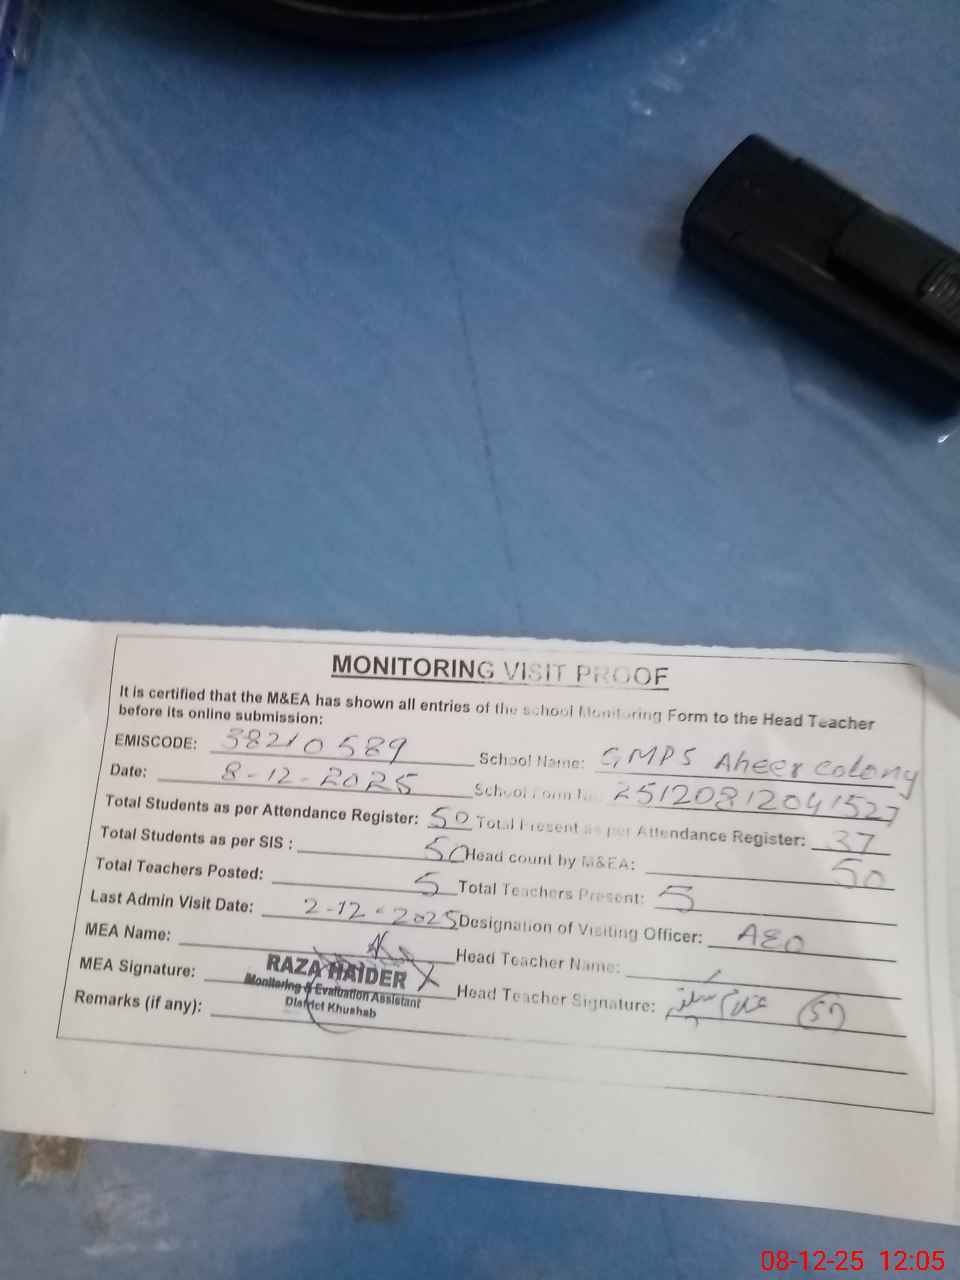 MONITORING VISIT PROOF
It is certified that the M&EA has shown all entries of the school Monitoring Form to the Head Teacher
before its online submission:
EMISCODE: 38210589 School Name: GMPS Aheer colony
Date: 8-12-2025 School Form No. 25120812041527
Total Students as per Attendance Register: 50 Total Present as per Attendance Register: 37
Total Students as per SIS : 50 Head count by M&EA: 50
Total Teachers Posted: 5 Total Teachers Present: 5
Last Admin Visit Date: 2-12-2025 Designation of Visiting Officer: AEO
MEA Name: Head Teacher Name:
RAZA HAIDER
MEA Signature: Monitoring & Evaluation Assistant Head Teacher Signature:
District Khushab
Remarks (if any):
08-12-25 12:05